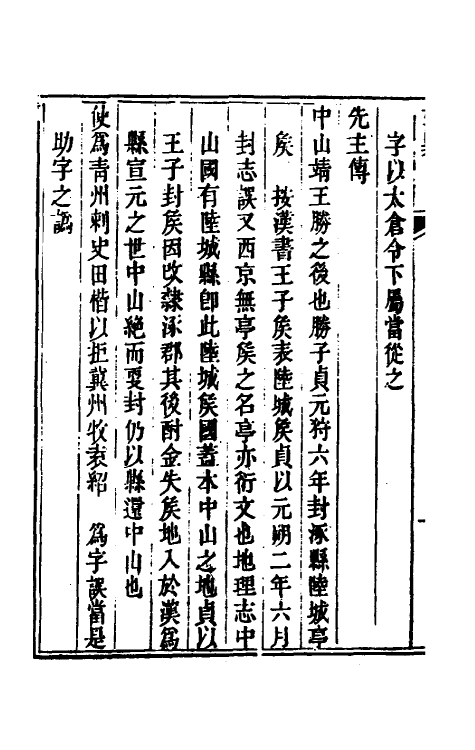 字以太倉令下屬當從之
先主傳
中山靖王勝之後也勝子貞元狩六年封涿縣陸城亭
矦　按漢書王子矦表陸城矦貞以元朔二年六月
封志誤又西京無亭矦之名亭亦衍文也地理志中
山國有陸城縣卽此陸城矦國蓋本中山之地貞以
王子封矦因改隸涿郡其後酎金失矦地入於漢爲
縣宣元之世中山絶而更封仍以縣還中山也
使爲青州刺史田楷以拒冀州牧袁紹　爲字誤當是
助字之譌